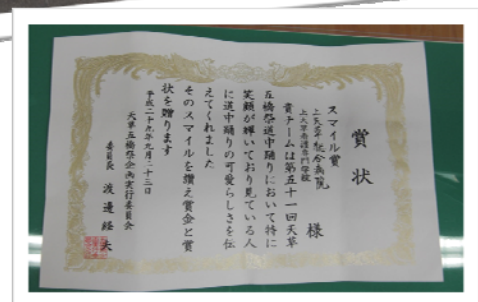 賞状
スマイル賞
上天草総合病院
上天草看護専門学校
様
貴チームは第五十一回天草
五橋祭道中踊りにおいて特に
笑顔が輝いており見ている人
に道中踊りの可愛らしさを伝
えてくれました
そのスマイルを讃え賞金と賞
状を贈ります
平成二十九年九月二十三日
天草五橋祭企画実行委員会
委員長 渡邉経夫